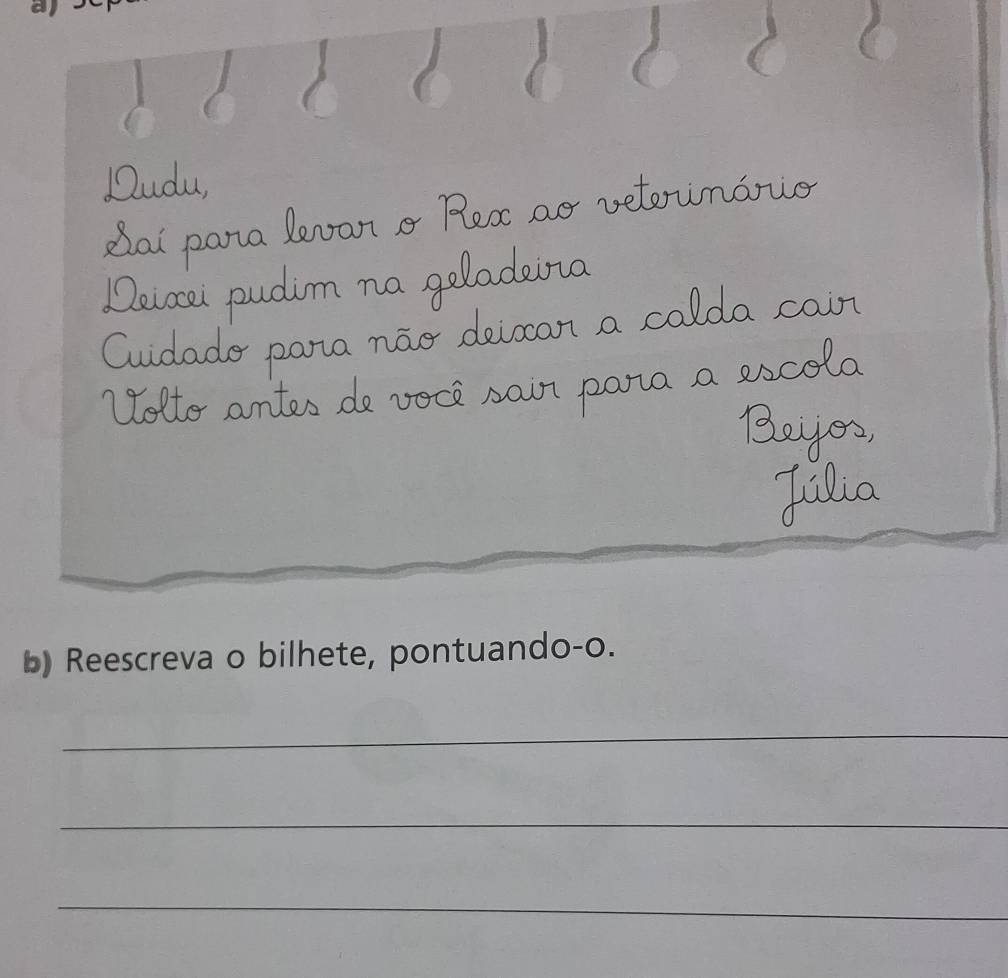 a)
Dudu,
Saí para levar o Rex ao veterinário
Deixei pudim na geladeira
Cuidado para não deixar a calda cair
Volto antes de você sair para a escola
Beijos,
Júlia
b) Reescreva o bilhete, pontuando-o.